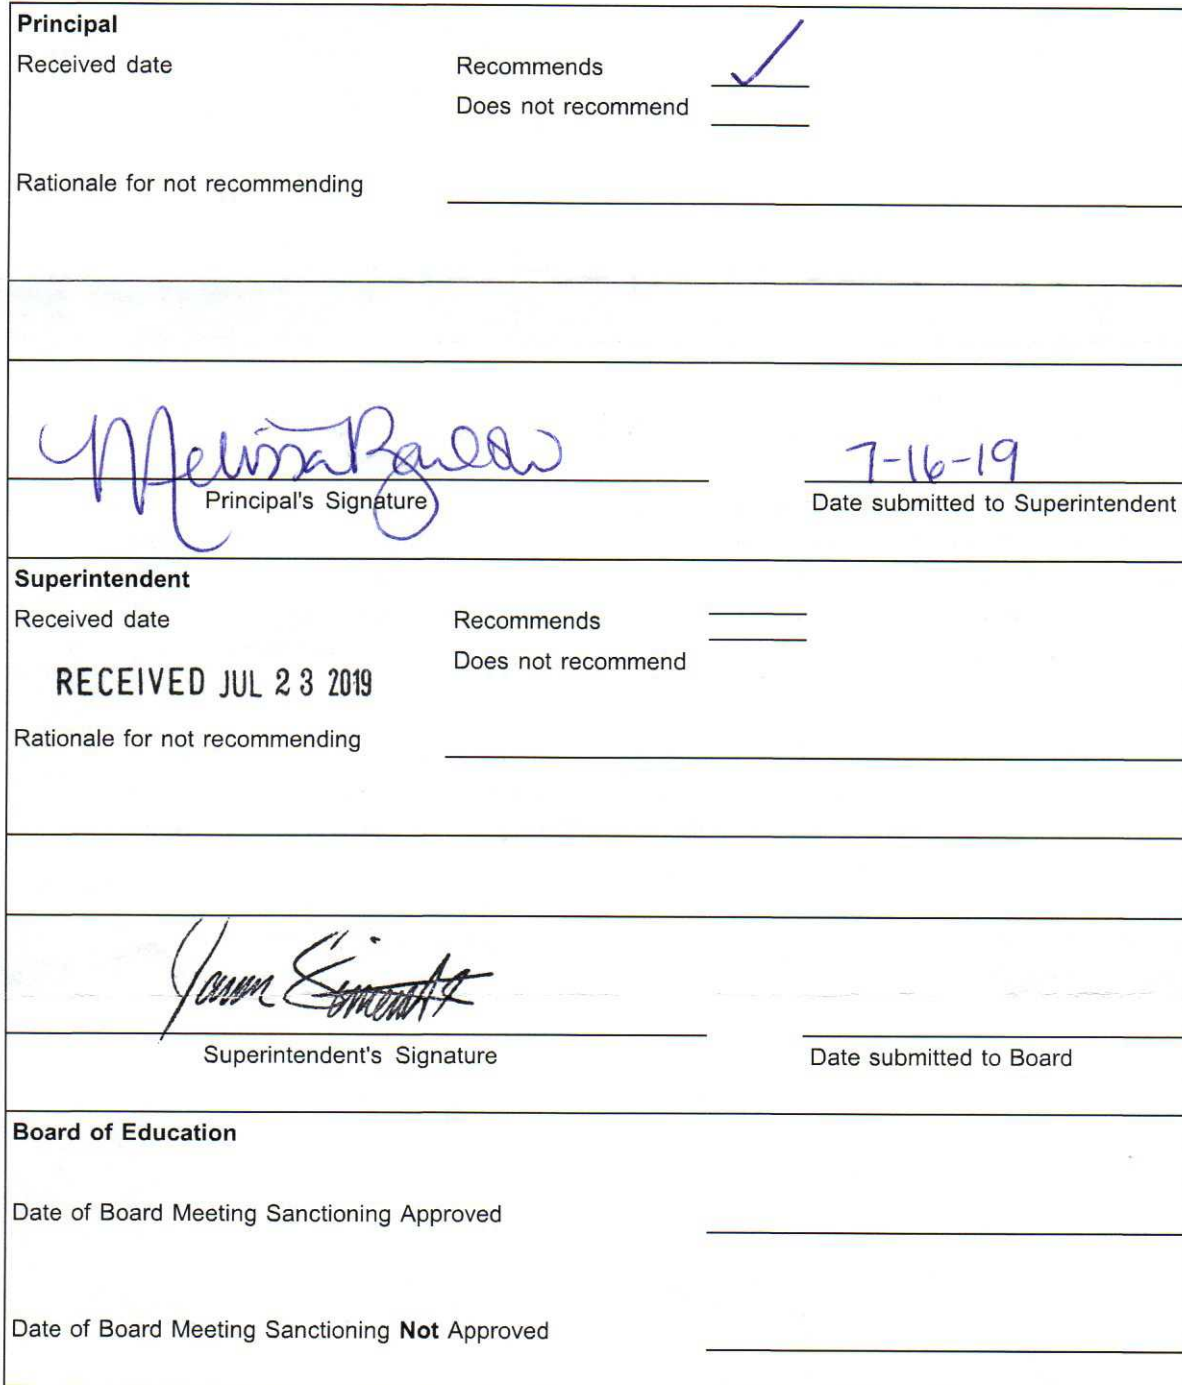 Principal
Received date Recommends ✓
Does not recommend
Rationale for not recommending
Melissa
7-16-19
Principal's Signature Date submitted to Superintendent
Superintendent
Received date Recommends
Does not recommend
RECEIVED JUL 23 2019
Rationale for not recommending
Superintendent's Signature Date submitted to Board
Board of Education
Date of Board Meeting Sanctioning Approved
Date of Board Meeting Sanctioning Not Approved